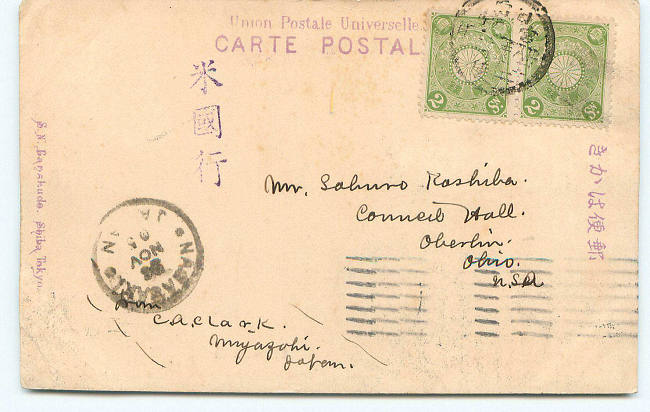 Union Postale Universelle.
CARTE POSTAL
米國行
2 2
きかは便郵
S.N. Banshudo. Shiba Tokyo.
Mr. Saburo Kashiba.
Council Hall.
Oberlin.
Ohio.
U.S.A
NAGASAKI
JAPAN
NOV
from
C.A. Clark.
Miyazaki.
Japan.